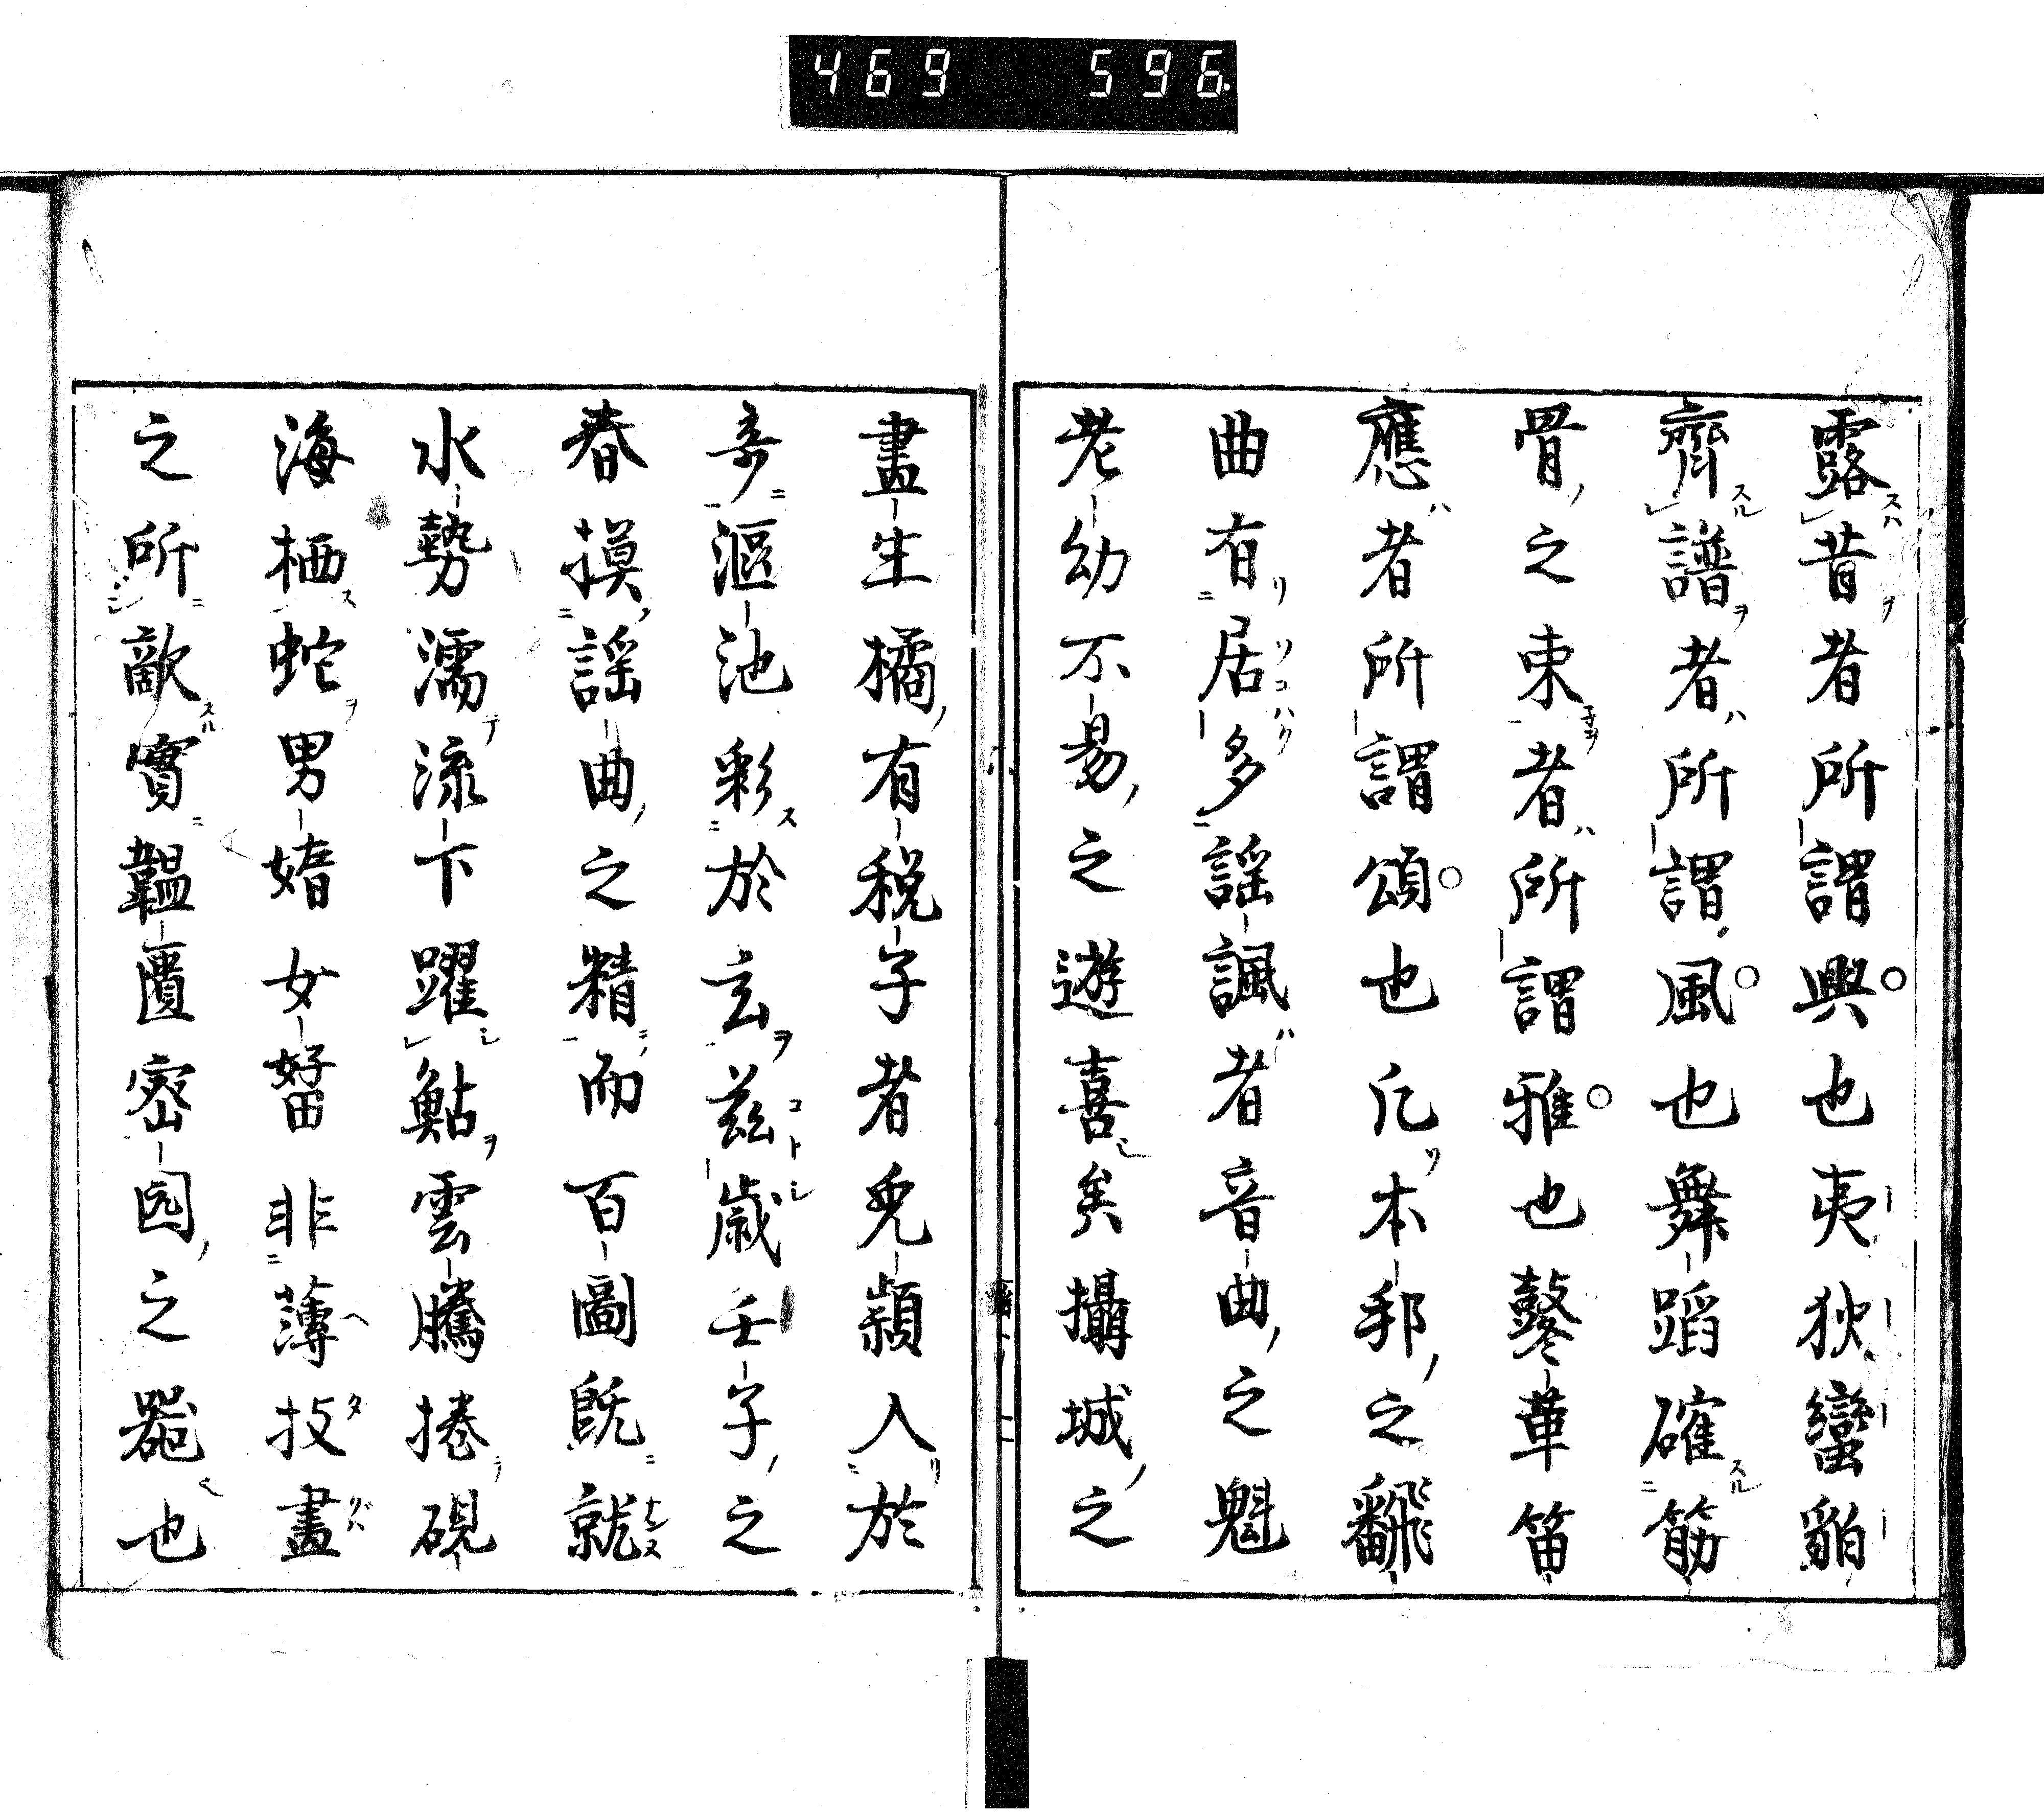 469 596
露昔者所謂興也夷狄蠻貊
齊譜者所謂風也舞蹈確筋
骨之束者所謂雅也鼕革笛
應者所謂頌也凡本邦之飜
曲有居多謡諷者音曲之魁
老幼不易之遊喜矣攝城之
畫生橘有税子者兎穎入於
竒漚池彩於玄茲歳壬子之
春摸謡曲之精而百圖既就
水勢濡流下躍鮎雲騰捲硯
海栖蛇男媎女㛗非薄技畫
之所敵實韞匱密囥之器也